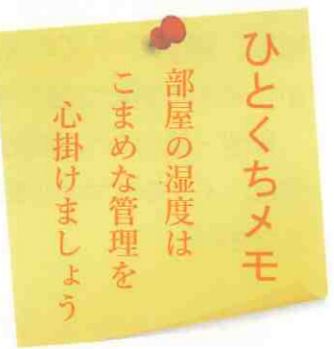 ひとくちメモ
部屋の湿度は
こまめな管理を
心掛けましょう